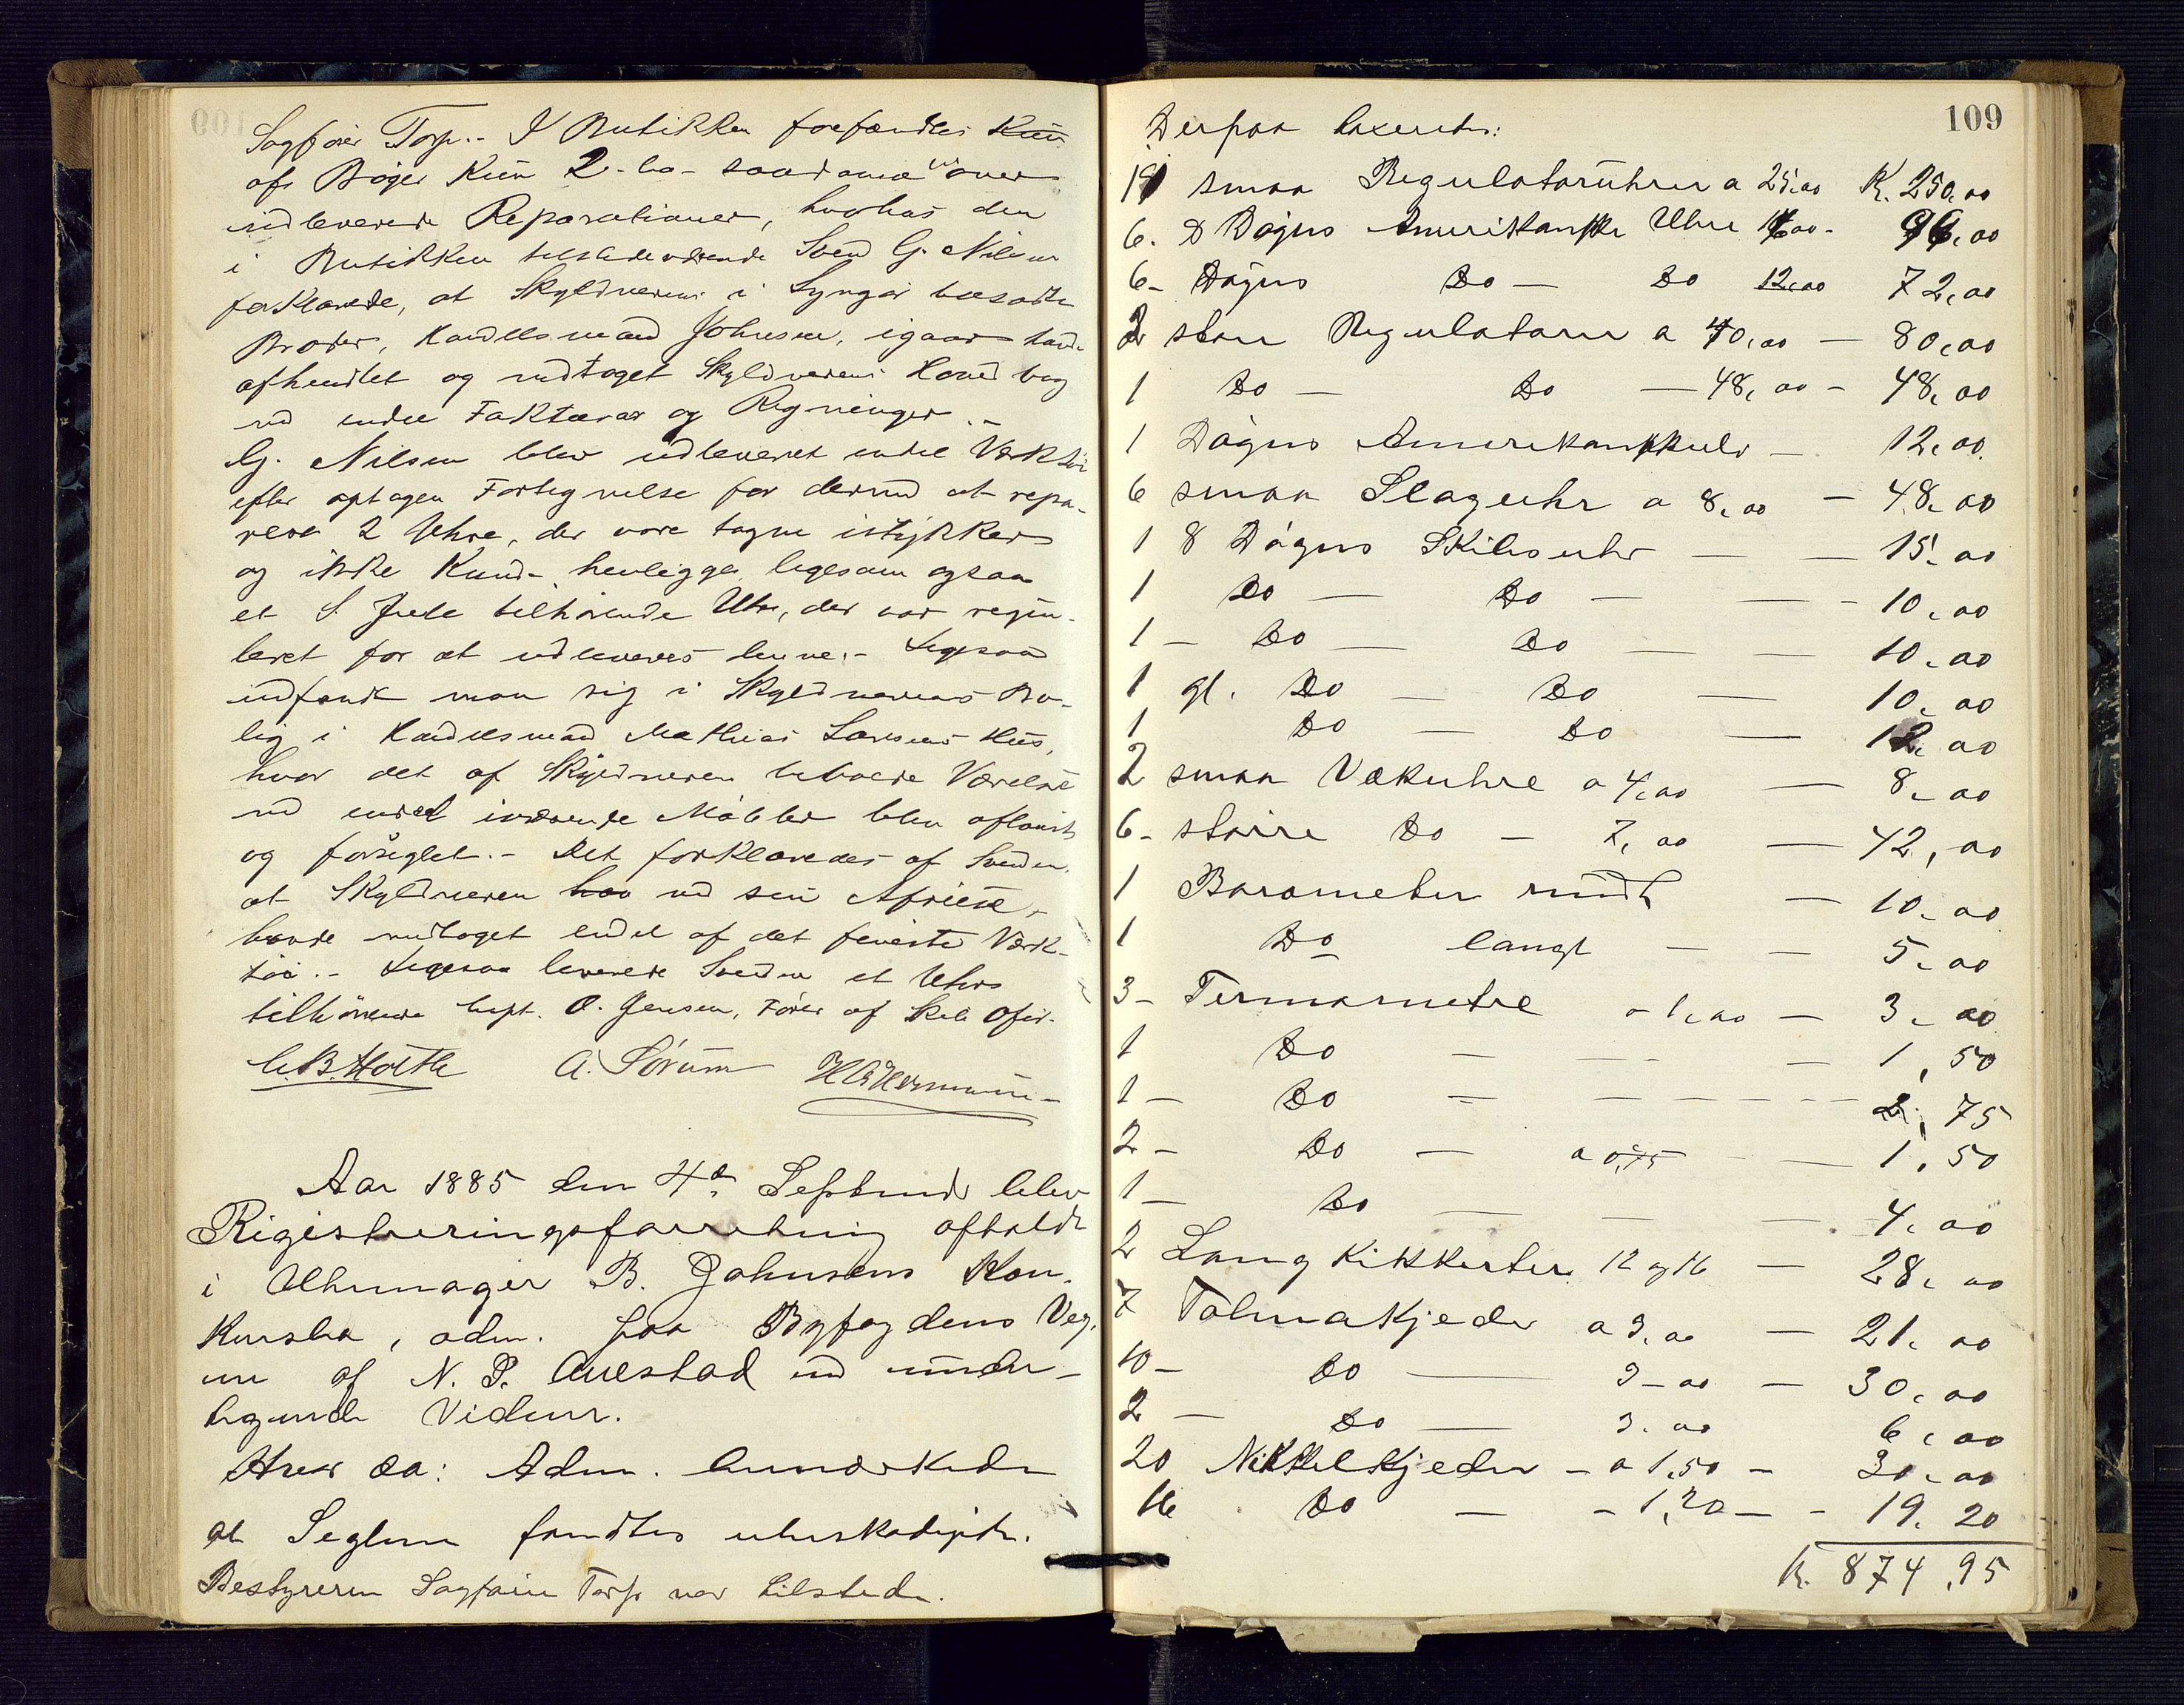 Sagfører Torp.- I Butikken forefandtes Kun
af Bøger Kun 2 - to - saadanne over
indleverede Reparationer, hvorhos den
i Butikken tilstedeværende Svend G. Nilsen
forklarede, at Skyldnerens i Lyngør bosatte
Broder, Handelsmand Johnsen, igaar havde
afhendtet og medtaget Skyldnerens Hovedbog
med endel Fakturaer og Regninger.-
G. Nilsen blev udleveret endel Værktøi
efter optagen Fortegnelse for dermed at repa-
rere 2 Uhre, der vare tagne istykker
og ikke Kunde henligge ligesom ogsaa
et S. Juel tilhørende Uhr, der var regu-
leret for at udleveres denne.- Ligesaa
indfandt man sig i Skyldnerens Bo-
lig i Handelsmand Mathias Larsens Hus,
hvor det af Skyldneren beboede Værelse
med endel inværende Møbler blev aflaaset
og forseglet.- Det forklaredes af Svenden,
at Skyldneren har ved sin Afreise
havde medtaget endel af det fineste Værk-
tøi.- Ligesaa leverede Svenden et Uhr
tilhørende Capt. O. Jensen, Fører af Skib Ofir.
C.B. Holth A. Sørum
Aar 1885 den 4de September blev
Registreringsforretning afholdt
i Uhrmager B. Johnsens Kon-
kursbo, adm. paa Byfogdens Veg-
ne af N. P. Auestad med under-
tegnede Vidner.
Hvor da: Adm. bemærkede
at Seglene fandtes ubeskadigede.
Bestyreren Sagfører Torp var tilstede.
109
Derpaa taxeredes:
10 smaa Regulatoruhre a 25,00 K. 250,00
6. 8 Døgns Amerikanske Uhre 16,00 - 96,00
6- Døgns Do - Do 12,00 72,00
2 store Regulatorer a 40,00 - 80,00
1 Do - Do - 48,00 - 48,00
1 Døgns Amerikanskuhr - 12,00
6 smaa Slaguhr a 8,00 - 48,00
1 8 Døgns Skibsuhr - - 15,00
1 Do - Do - - - 10,00
1 - Do - Do - - 10,00
1 gl. Do - Do - 10,00
1 Do - Do - 12,00
2 smaa Vækuhre a 4,00 - 8,00
6- større Do - 7,00 - 42,00
1 Barometer rundt - 10,00
1 Do langt - - 5,00
3- Termometre a 1,00 - 3,00
1 Do - - - - 1,50
1 - Do - - - - - - 2,75
2 - Do - a 0,75 - 1,50
1 - Do - - - 4,00
2 Lang Kikkerter 12 og 16 - 28,00
7 Tolmakjeder a 3,00 - 21,00
10 - Do - 3-00 - 30,00
2 - Do - 3.00 6,00
20 Nikkelkjeder - a 1,50 - 30,00
16 Do - - 1,20 - - 19,20
K. 874,95